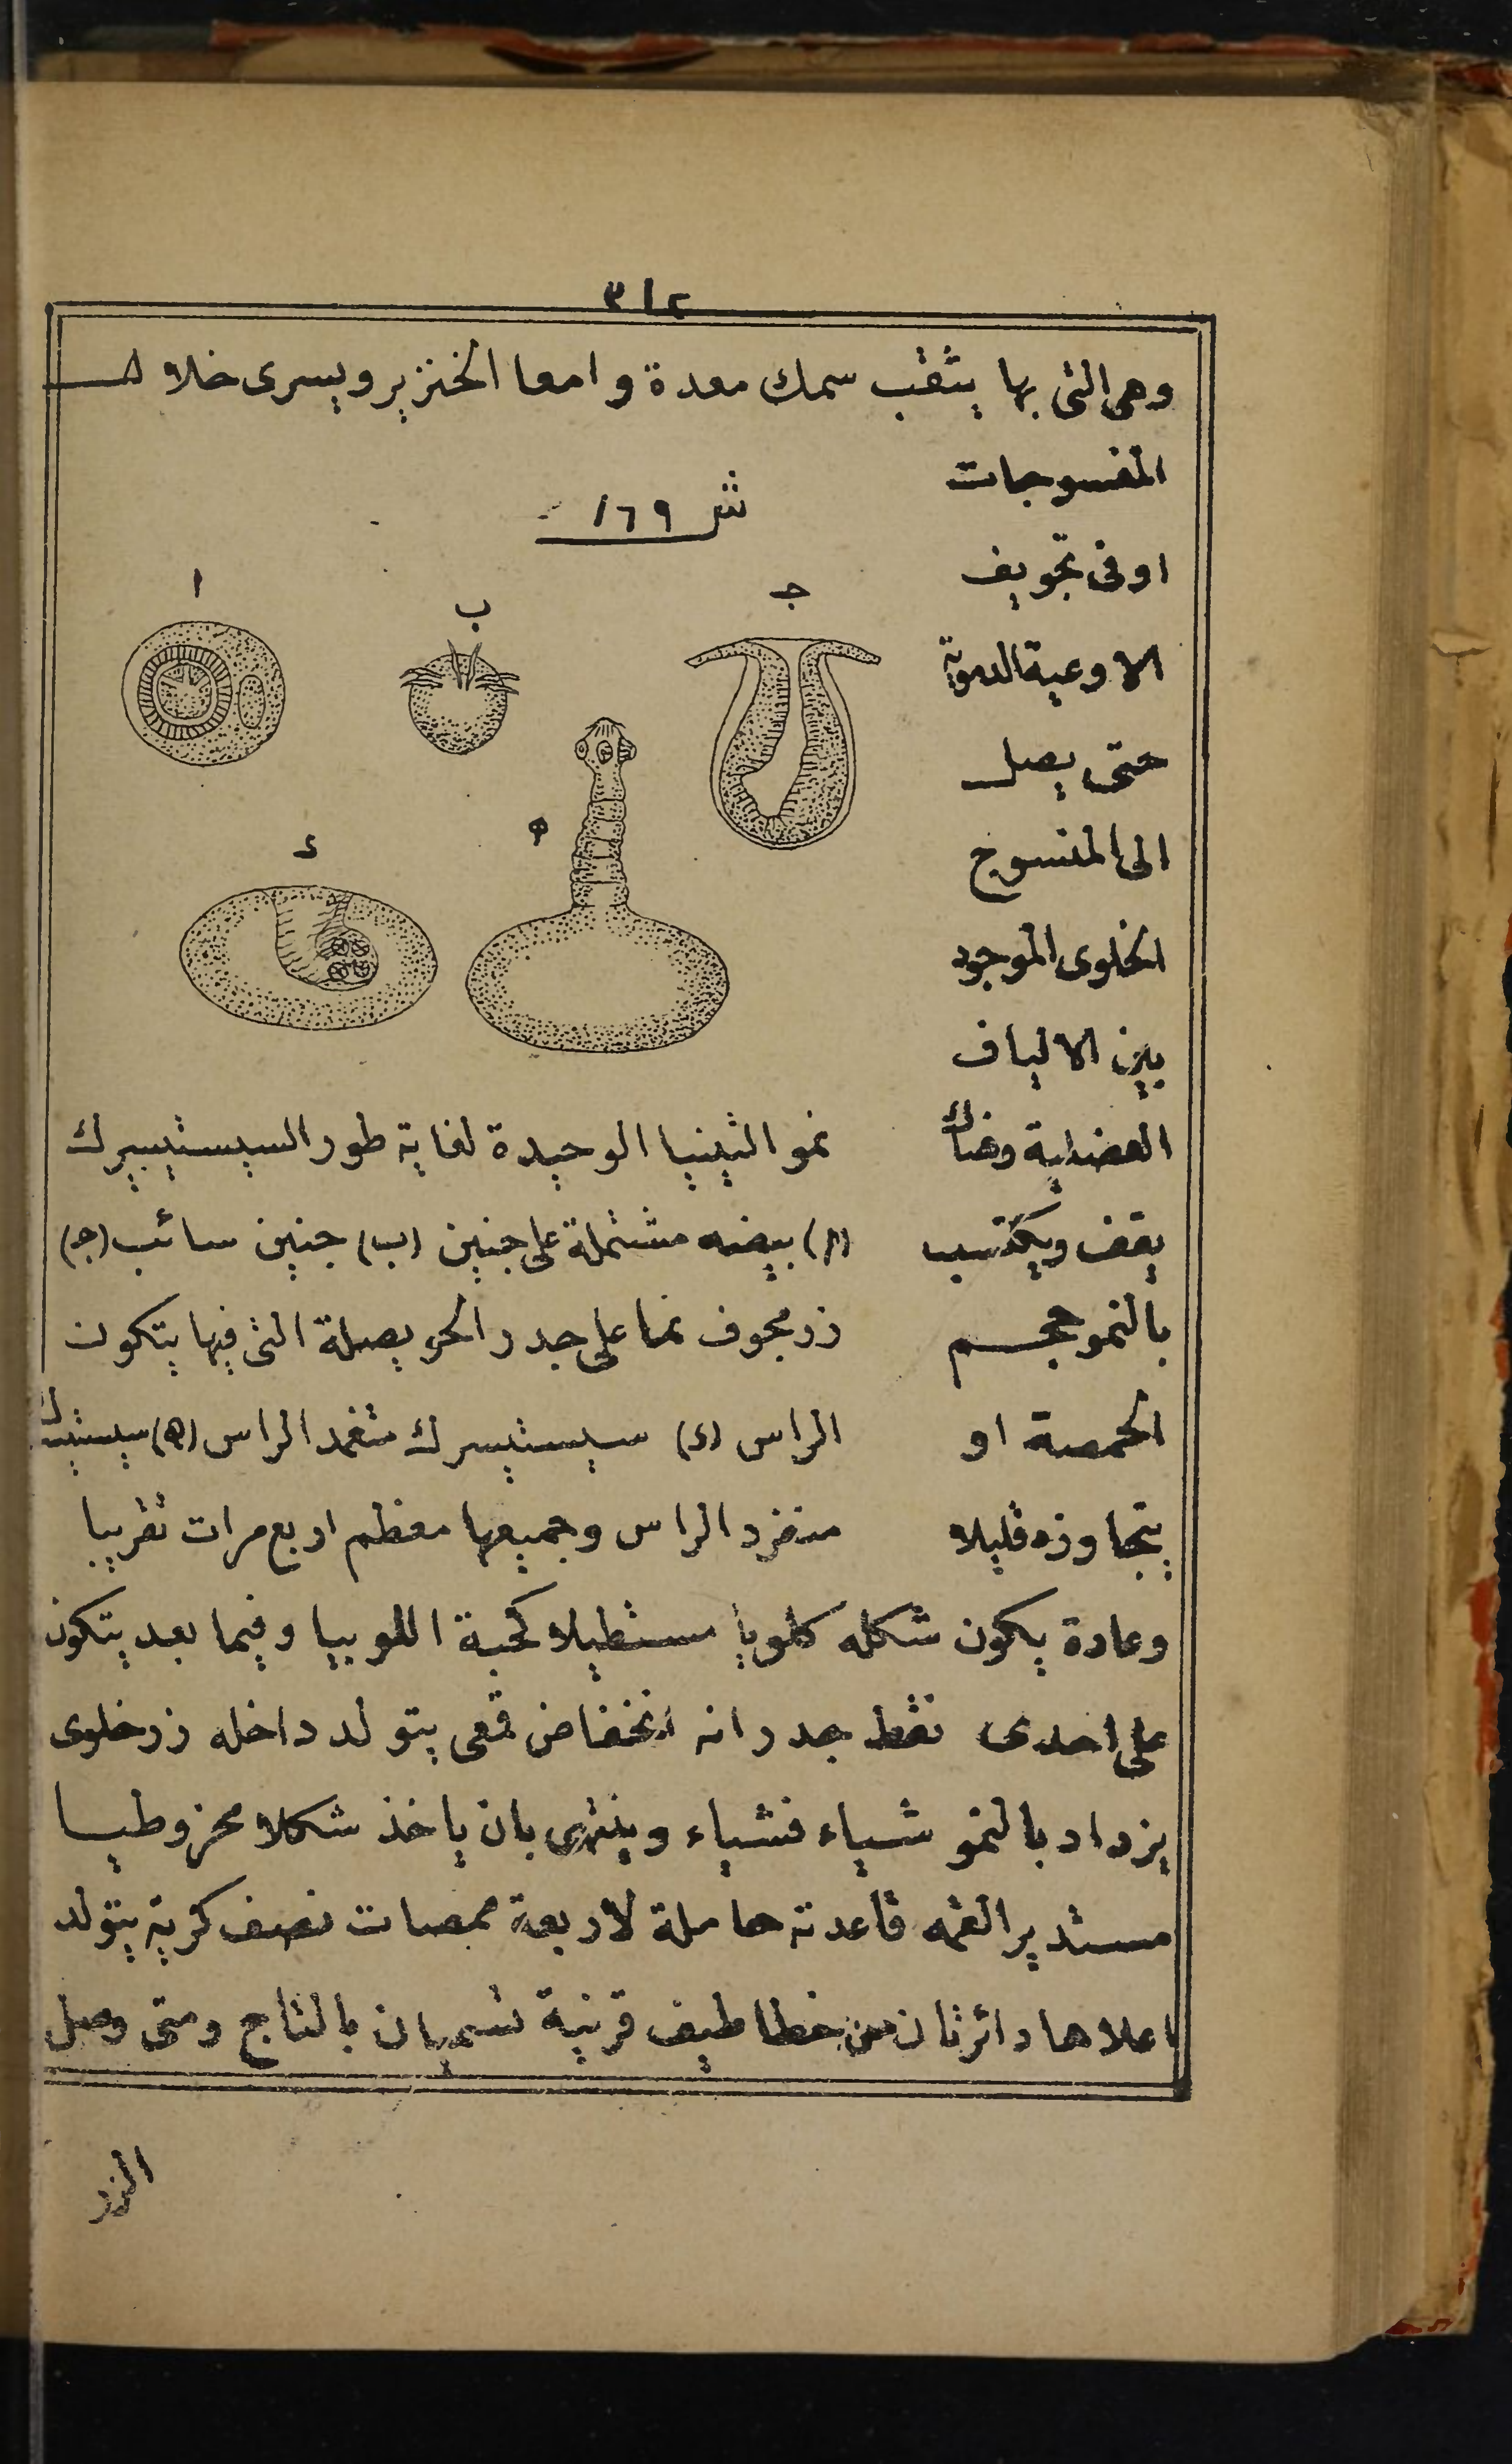 ٣١٢
وهى التى بها يثقب سمك معدة وامعا الخنزير ويسرى خلال
المنسوجات
اوفى تجويف
الاوعية الدموية
حتى يصل
الى المنسوج
الخلوى الموجود
بين الالياف
العضلية وهناك
يقف ويكتسب
بالنمو حجم
الحمصة او
يتجاوزه قليلا
ش ١٦٩
ا
ب
ج
د
ه
نمو التينيا الوحيدة لغاية طور السيستيسيرك
(ا) بيضه مشتملة على جنين (ب) جنين سائب (ج)
زر مجوف نما على جدر الحويصلة التى فيها يتكون
الراس (د) سيستيسرك منغمد الراس (ه) سيستيسرك
منفرد الراس وجميعها معظم اربع مرات تقريبا
وعادة يكون شكله كلويا مستطيلا كحبة اللوبيا وفيما بعد يتكون
على احدى نقط جدرانه انخفاض قمعى يتولد داخله زر خلوى
يزداد بالنمو شياء فشياء وينتهى بان ياخذ شكلا مخروطيا
مستدير القمه قاعدته حاملة لاربعة ممصات نصف كرية يتولد
اعلاها دائرتان من خطاطيف قرنية تسميان بالتاج ومتى وصل
الزر